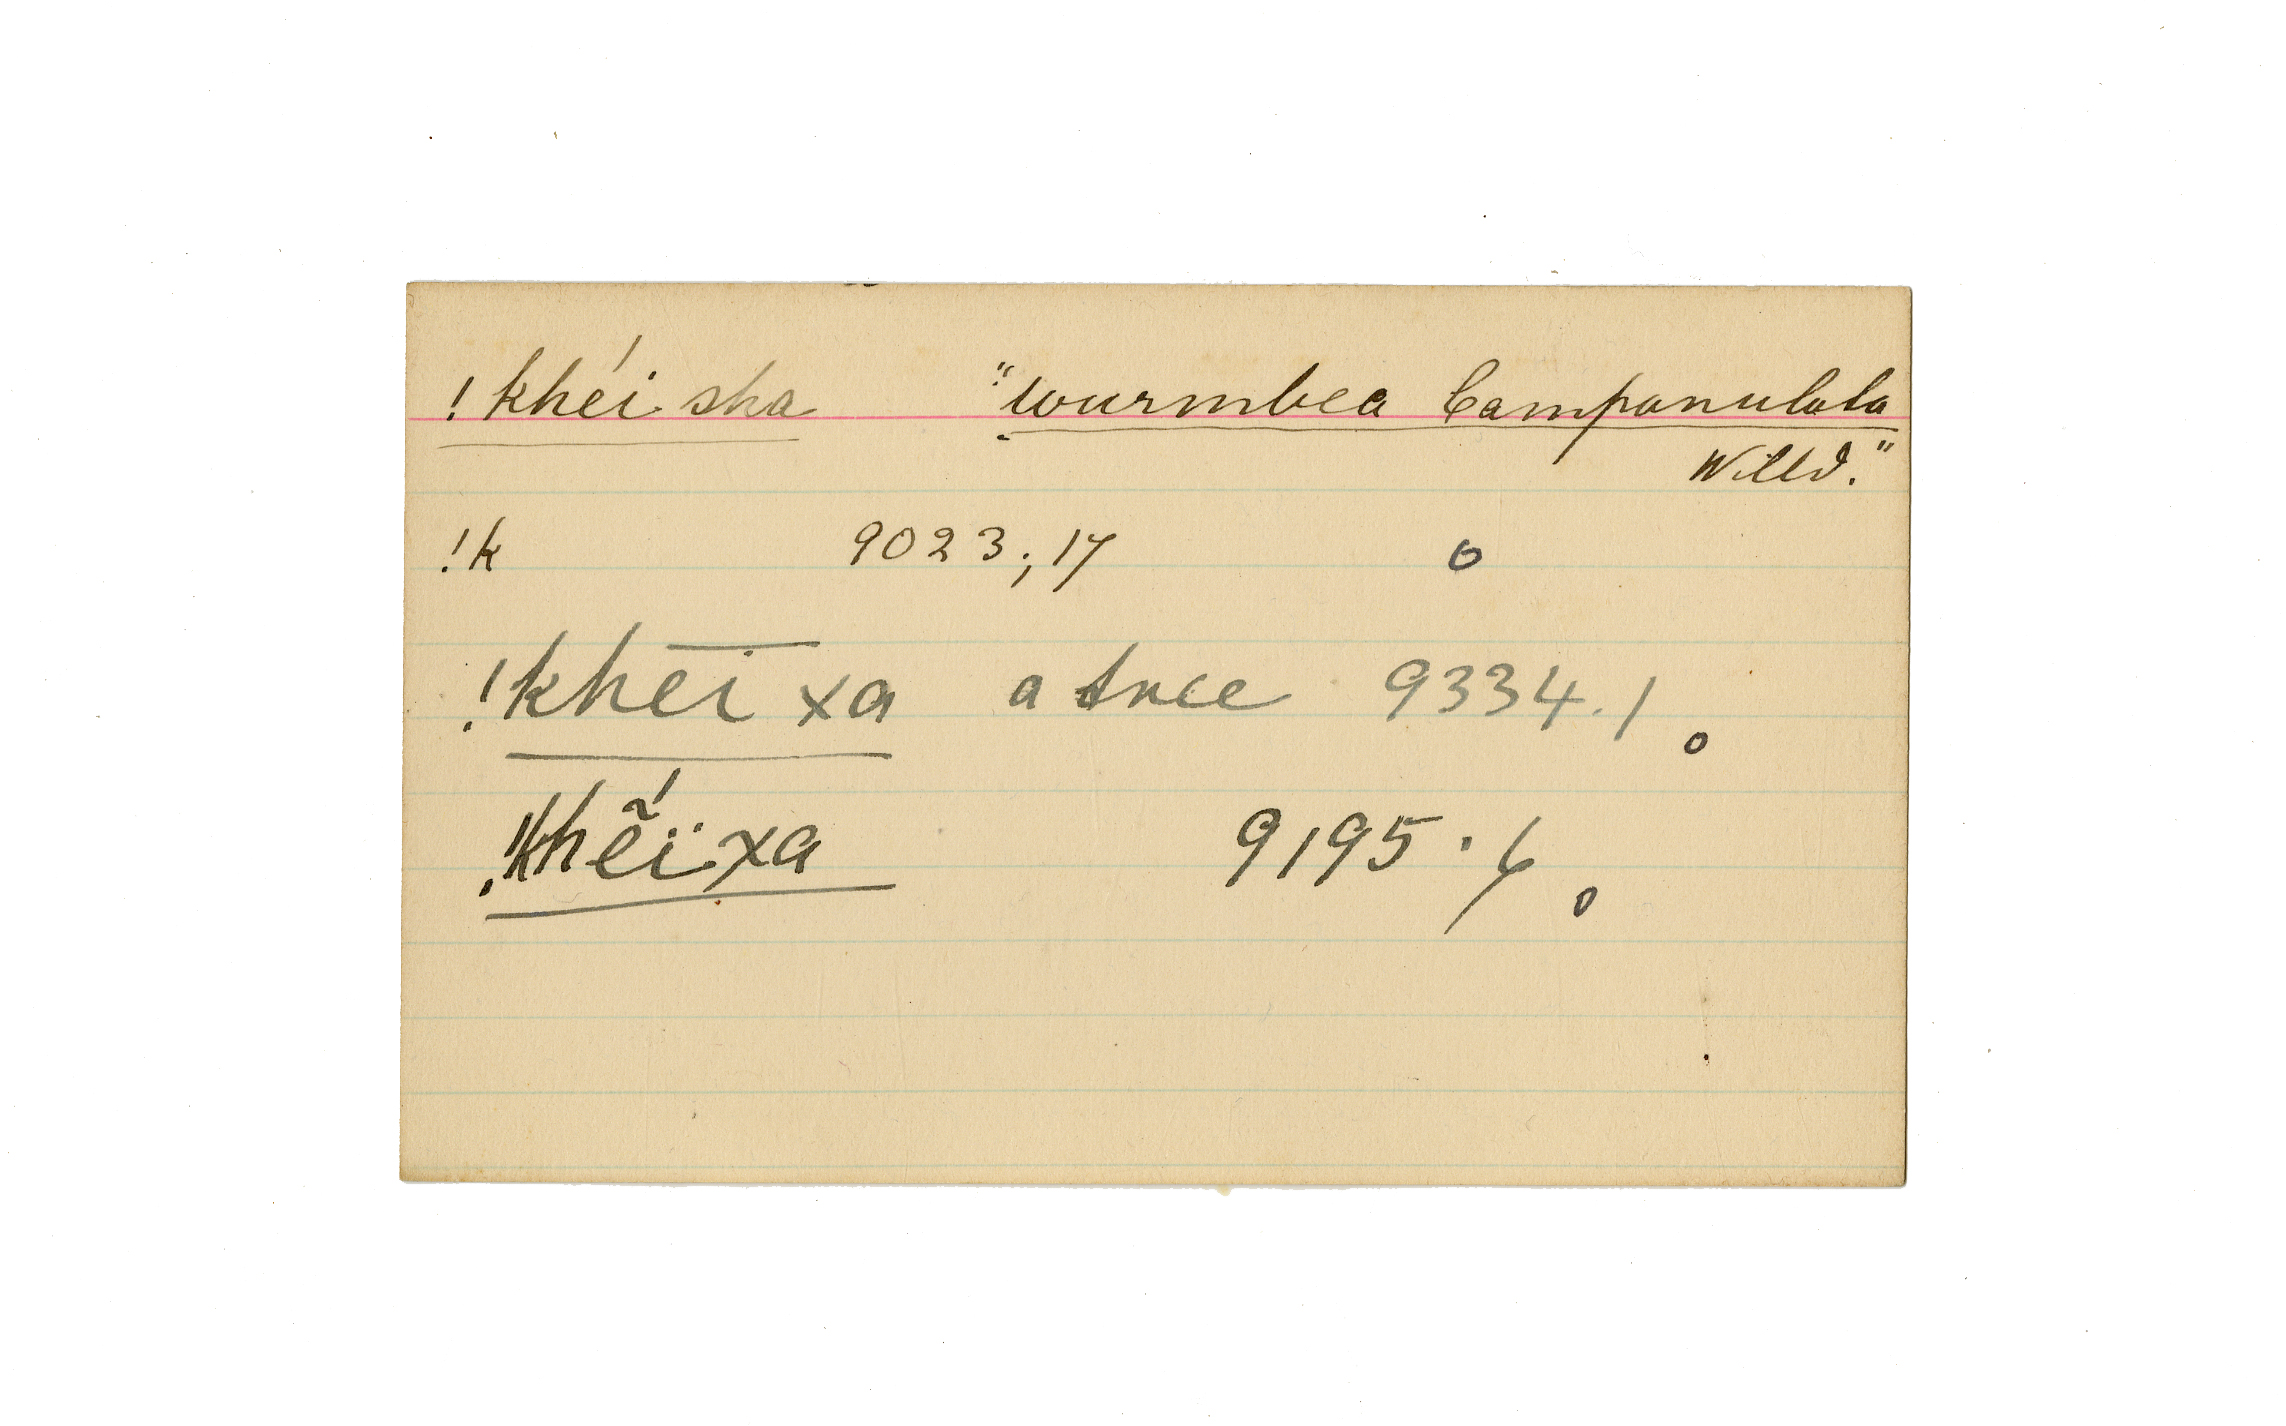 !khéi sha "Wurmbea Campanulata
Willd."
!k 9023; 17 o
!kh͞e͞i xa a tree 9334.1 o
!khẽ́ï xa 9195.6 o